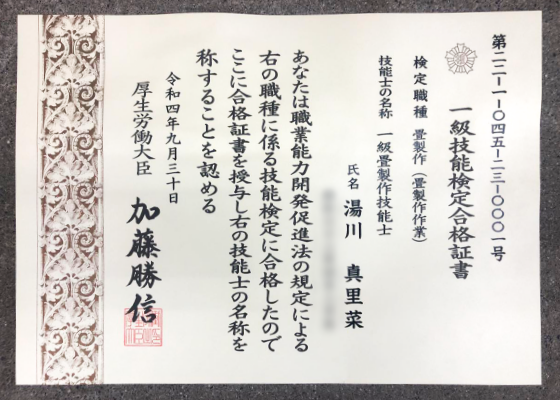 第二二-一-〇四五-二三-〇〇〇一号
一級技能検定合格証書
検定職種 畳製作(畳製作作業)
技能士の名称 一級畳製作技能士
氏名 湯川 真里菜
あなたは職業能力開発促進法の規定による
右の職種に係る技能検定に合格したので
ここに合格証書を授与し右の技能士の名称を
称することを認める
令和四年九月三十日
厚生労働大臣 加藤勝信